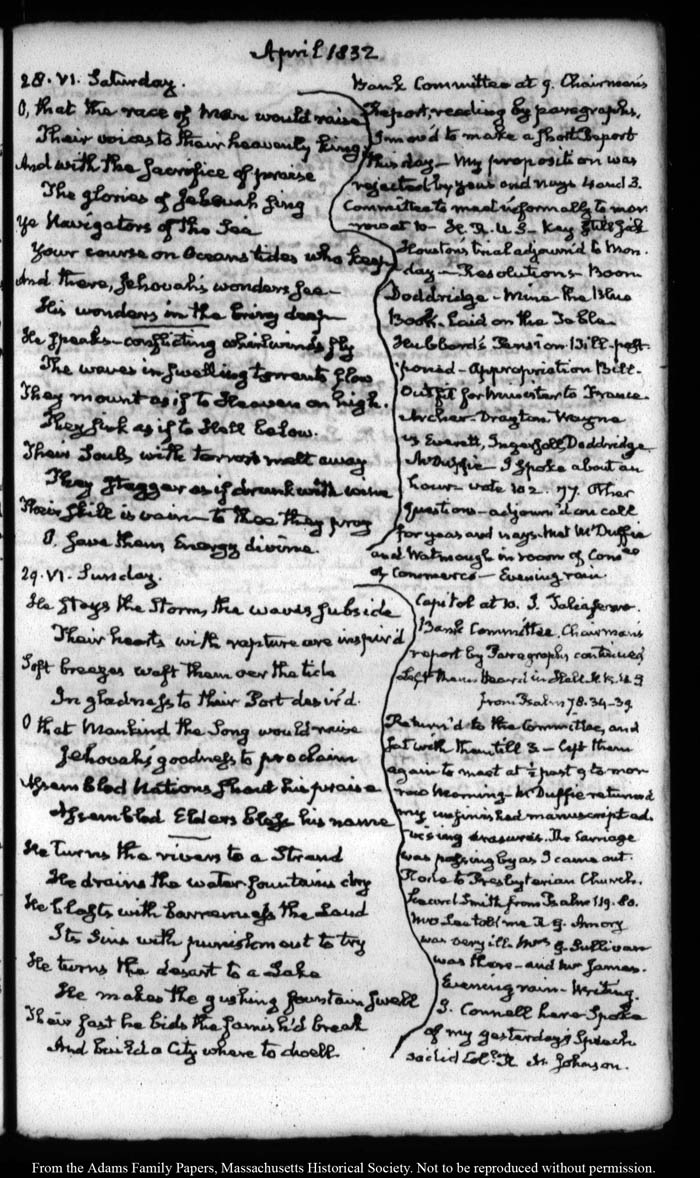 April 1832
28. VI. Saturday.
O, that the race of Men would raise
Their voices to their heavenly king
And with the Sacrifice of praise
The glories of Jehovah sing
Ye Navigators of the Sea
Your course on Oceans tides who keep
And there, Jehovah's wonders see—
His wonders in the briny deep
He speaks—conflicting whirlwinds fly
The waves in swelling torrents flow
They mount as if to Heaven on high.
They sink as if to Hell below.
Their Souls with terror melt away
They stagger as if drunk with wine
Their skill is vain—to thee they pray
O. save them Energy divine.
Bank Committee at 9. Chairman's
Report, reading by paragraphs,
I mov'd to make a short Report
this day— My proposition was
rejected by yeas and nays 4 and 3.
Committee to meet informally to mor-
row at 10— H. R. U S— Key still sick
Houston's trial adjourn'd to Mon-
day— Resolutions— Boon
Doddridge— Mine the Blue
Book. Laid on the Table.
Hubbard's Pension Bill post-
poned— Appropriation Bill.
Outfit for Minister to France.
Archer. Drayton. Wayne
Everett, Ingersoll, Doddridge
McDuffie— I spoke about an
hour— vote 102. 77. Other
Questions— adjourn'd on call
for yeas and nays. Met McDuffie
and Watmough in room of Com.ee
of Commerce— Evening rain.
29. VI. Sunday.
He stays the storm, the waves subside
Their hearts with rapture are inspir'd
Soft breezes waft them o'er the tide
In gladness to their Port desir'd.
O that Mankind the Song would raise
Jehovah's goodness to proclaim
Assembled Nations shout his praise
Assembled Elders bless his name
He turns the rivers to a Strand
He drains the water fountains dry
He blasts with barrenness the Land
Its Sins with punishment to try
He turns the desart to a Lake
He makes the gushing fountain swell
Their fast he bids the famish'd break
And build a City where to dwell.
Capitol at 10. J. Taliaferro.
Bank Committee. Chairman's
report by Paragraphs continued
Left them. Heard in Hall H R. U S
from Psalm 78. 34-39
Return'd to the Committee, and
sat with them till 3— left them
again to meet at ½ past 9 to mor-
row Morning— McDuffie returned
my unfinished manuscript ad-
vising erasures. The Carriage
was passing by as I came out.
Rode to Presbyterian Church.
Heard Smith from Psalm 119. 80.
Mrs Lee told me R G. Amory
was very ill. Mrs G. Sullivan
was there— and Mr James.
Evening rain— Writing.
J. Connell here. Spoke
of my yesterday's Speech
so did Col. R. M. Johnson.
From the Adams Family Papers, Massachusetts Historical Society. Not to be reproduced without permission.